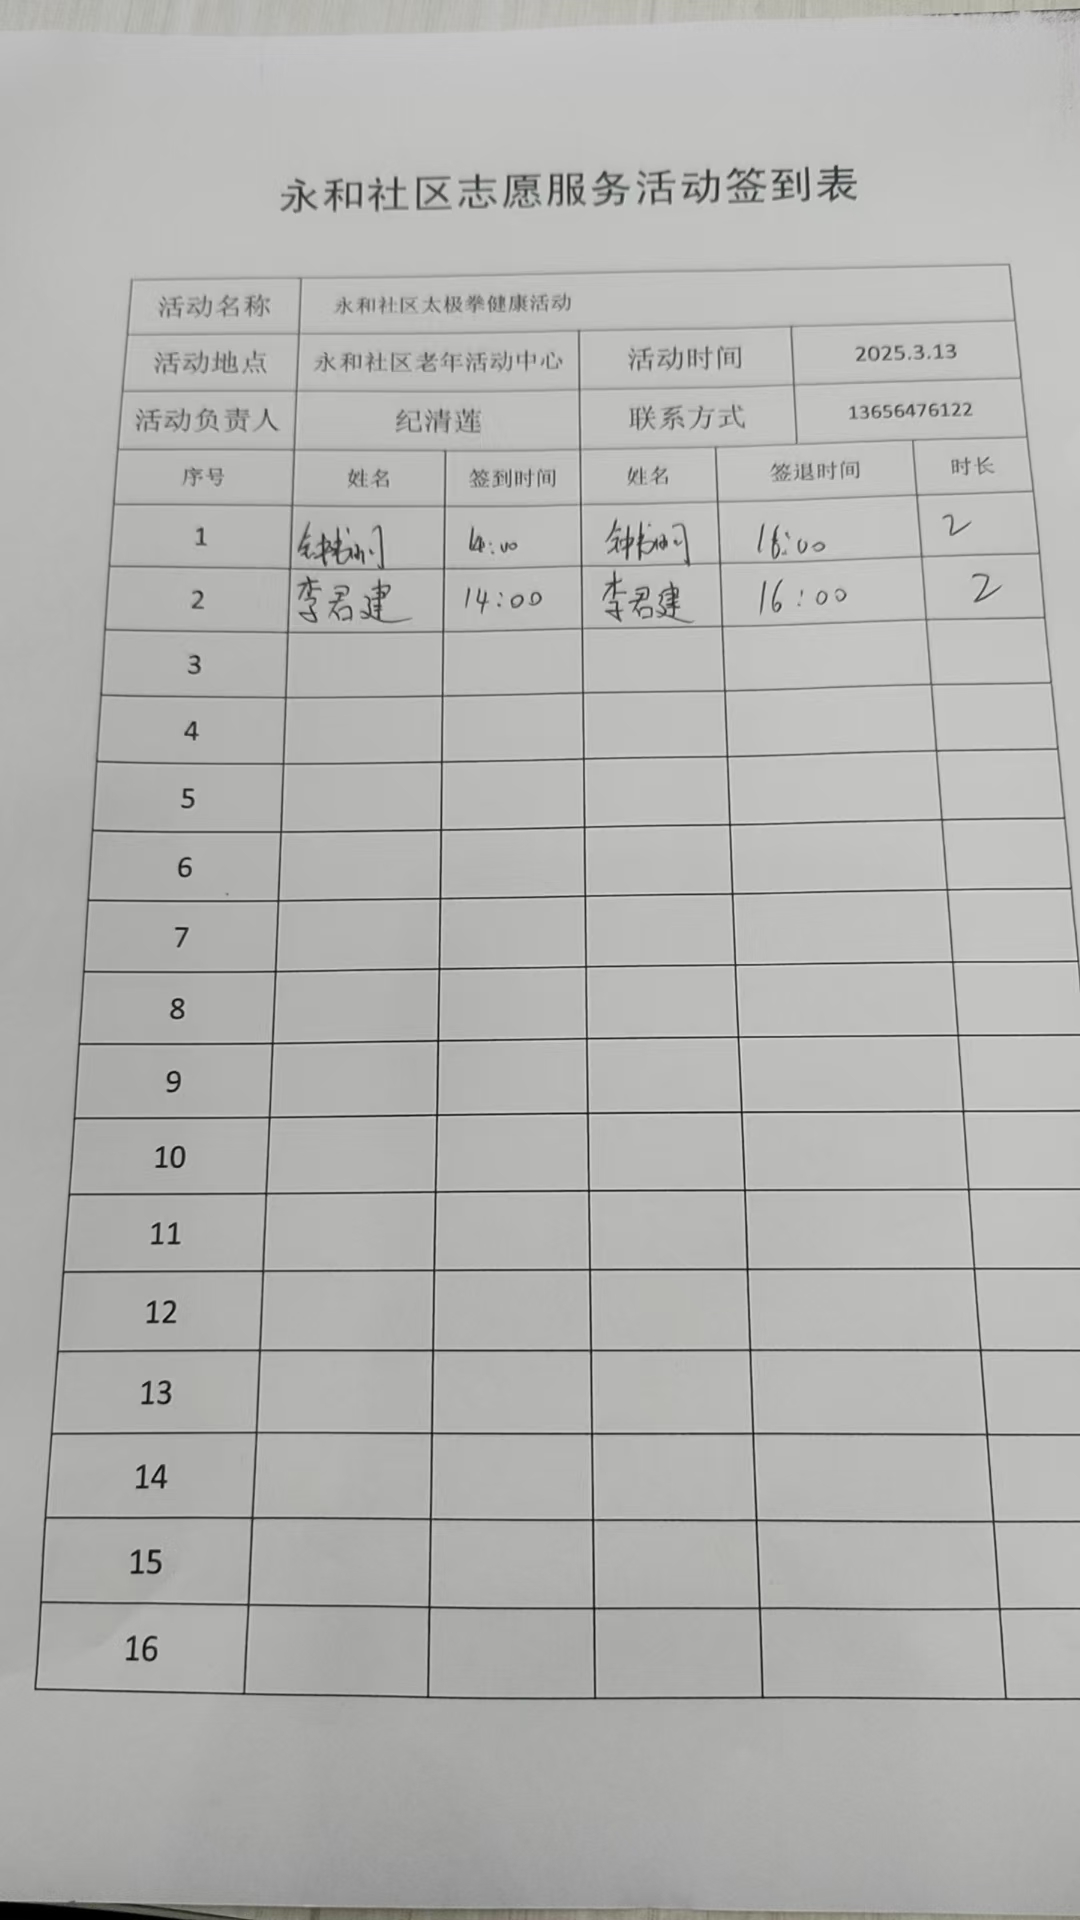 永和社区志愿服务活动签到表
活动名称 永和社区太极拳健康活动
活动地点 永和社区老年活动中心 活动时间 2025.3.13
活动负责人 纪清莲 联系方式 13656476122
序号 姓名 签到时间 姓名 签退时间 时长
1 14:00 16:00 2
2 李君建 14:00 李君建 16:00 2
3
4
5
6
7
8
9
10
11
12
13
14
15
16